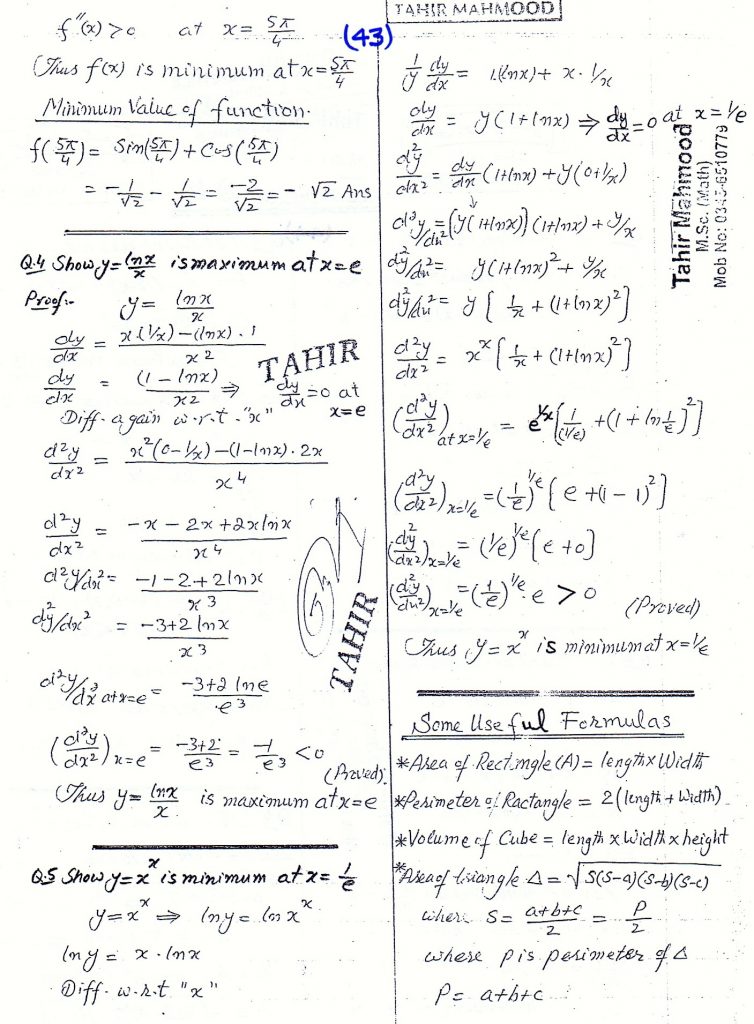 TAHIR MAHMOOD
(43)
f''(x) > 0 at x = 5π/4
Thus f(x) is minimum at x = 5π/4
Minimum Value of function.
f(5π/4) = Sin(5π/4) + Cos(5π/4)
= -1/√2 - 1/√2 = -2/√2 = - √2 Ans
Q.4 Show y = lnx/x is maximum at x=e
Proof:- y = lnx/x
dy/dx = x.(1/x) - (lnx).1 / x2
dy/dx = (1 - lnx)/x2 ⇒ dy/dx = 0 at x=e
TAHIR
Diff. again w.r.t. "x"
d²y/dx² = x²(0 - 1/x) - (1 - lnx). 2x / x4
d²y/dx² = -x - 2x + 2x lnx / x4
d²y/dx² = -1 - 2 + 2lnx / x3
d²y/dx² = -3 + 2 lnx / x3
TAHIR
d²y/dx² at x=e = -3+2 lne / e3
(d²y/dx²) x=e = -3+2/e3 = -1/e3 < 0
(Proved).
Thus y = lnx/x is maximum at x=e
Q5 Show y = x^x is minimum at x = 1/e
y = x^x ⇒ lny = ln x^x
lny = x . lnx
Diff. w.r.t "x"
1/y dy/dx = 1.(lnx) + x . 1/x
dy/dx = y(1+lnx) ⇒ dy/dx = 0 at x = 1/e
d²y/dx² = dy/dx (1+lnx) + y(0+1/x)
↓
d²y/dx² = [y(1+lnx)](1+lnx) + y/x
d²y/dx² = y(1+lnx)² + y/x
d²y/dx² = y [1/x + (1+lnx)²]
d²y/dx² = x^x [1/x + (1+lnx)²]
(d²y/dx²) at x=1/e = e^1/x [1/(1/e) + (1 + ln 1/e)²]
(d²y/dx²) x=1/e = (1/e)^1/e [e + (1 - 1)²]
(d²y/dx²) x=1/e = (1/e)^1/e [e + 0]
(d²y/dx²) x=1/e = (1/e)^1/e . e > 0
(Proved)
Thus y = x^x is minimum at x = 1/e
Tahir Mahmood
M.Sc. (Math)
Mob No: 0345-6510779
Some Useful Formulas
*Area of Rectangle (A) = length x Width
*Perimeter of Ractangle = 2(length + Width)
*Volume of Cube = length x Width x height
*Area of triangle Δ = √S(S-a)(S-b)(S-c)
where S = a+b+c/2 = P/2
where p is perimeter of Δ
P = a+b+c